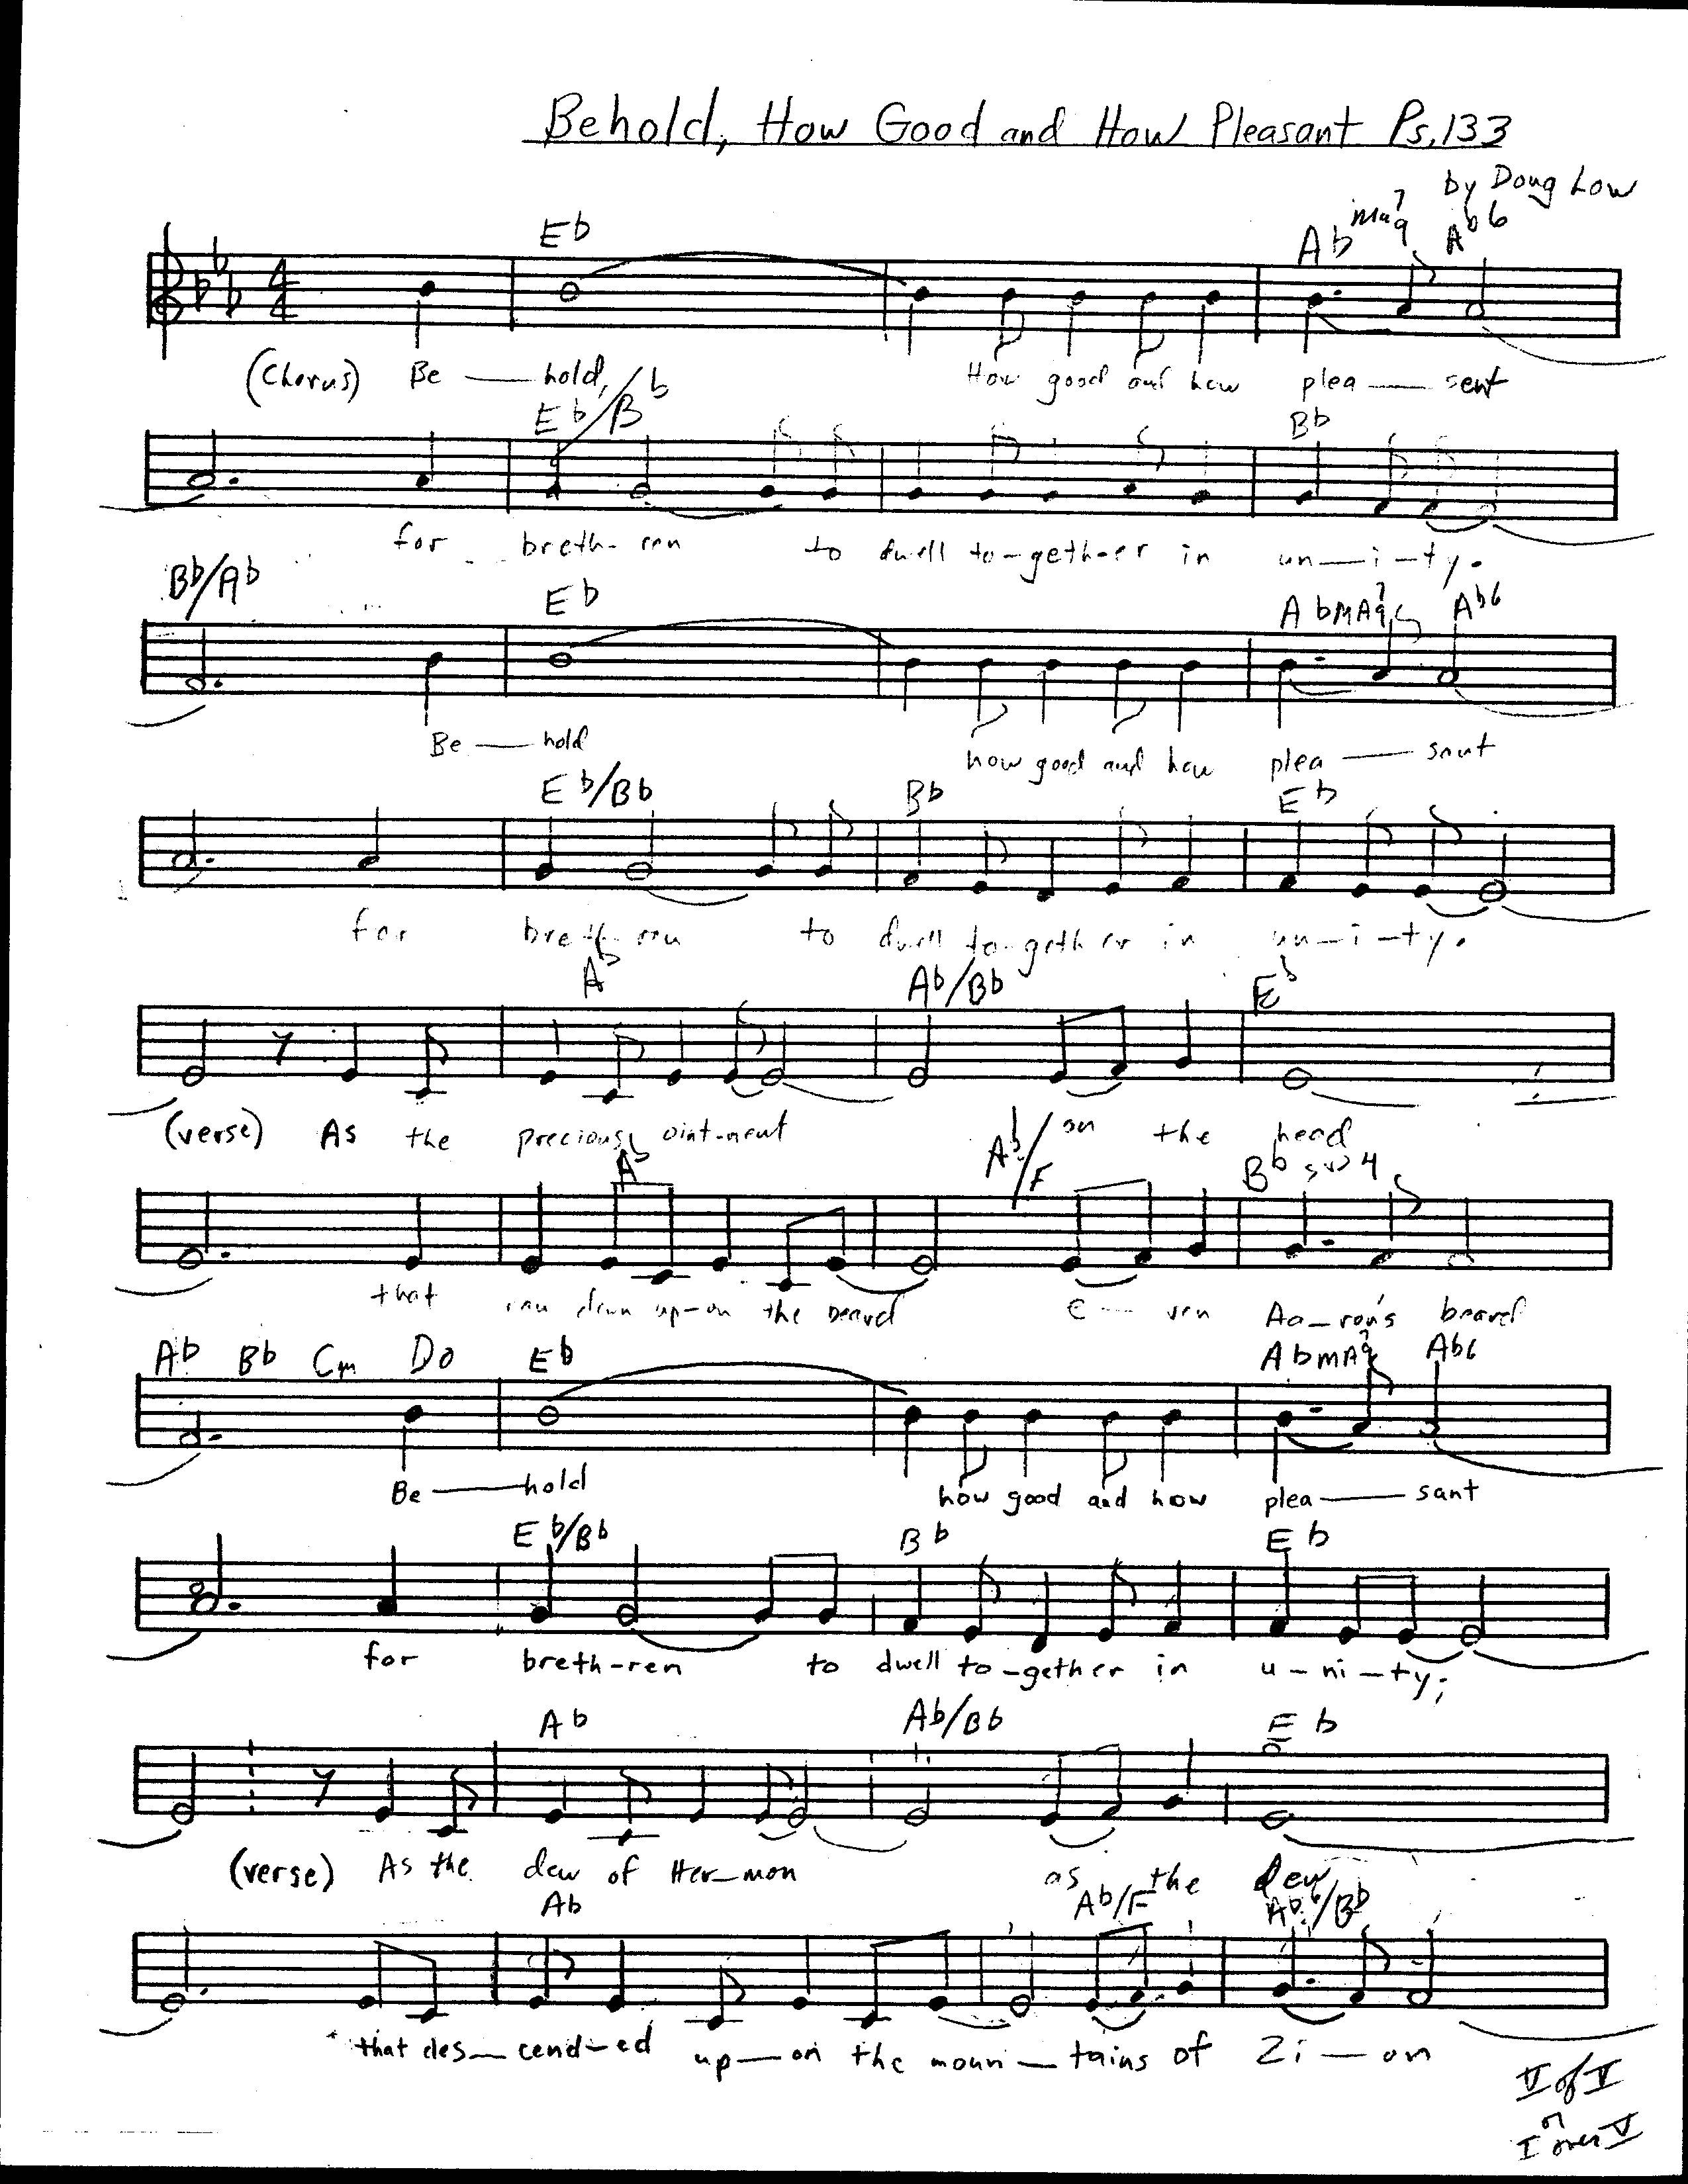 Behold, How Good and How Pleasant Ps. 133
by Doug Low
Eb Ab Ma79 Ab6
4/4
(Chorus) Be — hold, How good and how plea — sent
Eb/Bb Bb
for breth-ren to dwell to-geth-er in un—i—ty.
Bb/Ab Eb AbMA79 Ab6
Be — hold how good and how plea — sant
Eb/Bb Bb Eb
for breth-ren to dwell to-gether in un—i—ty.
Ab Ab/Bb Eb
(verse) As the precious oint-ment on the head
Ab Ab/F Bb sus4
that ran down up-on the beard e — ven Aa-ron's beard
Ab Bb Cm Do Eb AbMA79 Ab6
Be — hold how good and how plea — sant
Eb/Bb Bb Eb
for breth-ren to dwell to-gether in u-ni-ty;
Ab Ab/Bb Eb
(verse) As the dew of Her-mon as the dew
Ab Ab/F Ab6/Bb
that des-cend-ed up-on the moun-tains of Zi-on
V of V
or
I over V